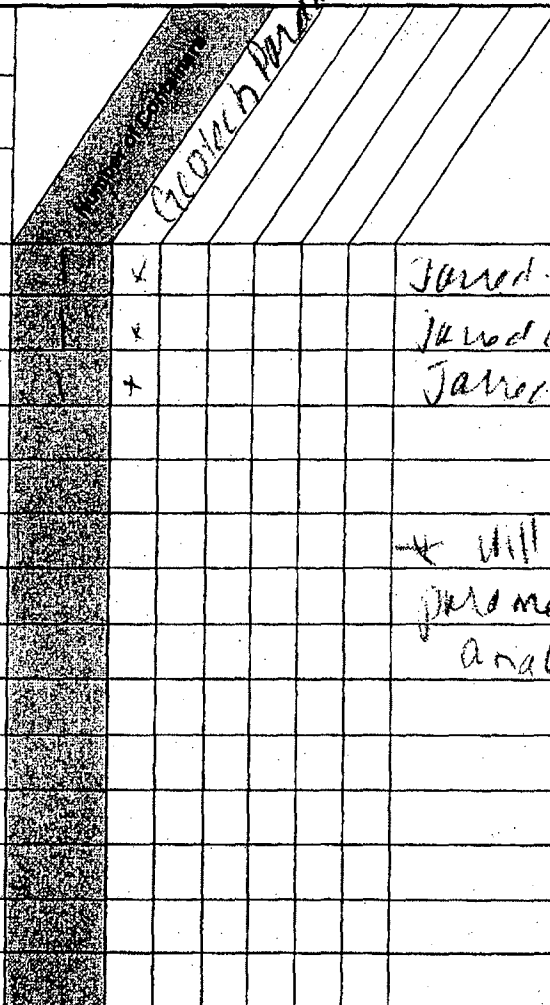 Number of Containers
Geotech Para
1 x Jarred
1 x Jarred
1 x Jarred
* Will
parame
anal